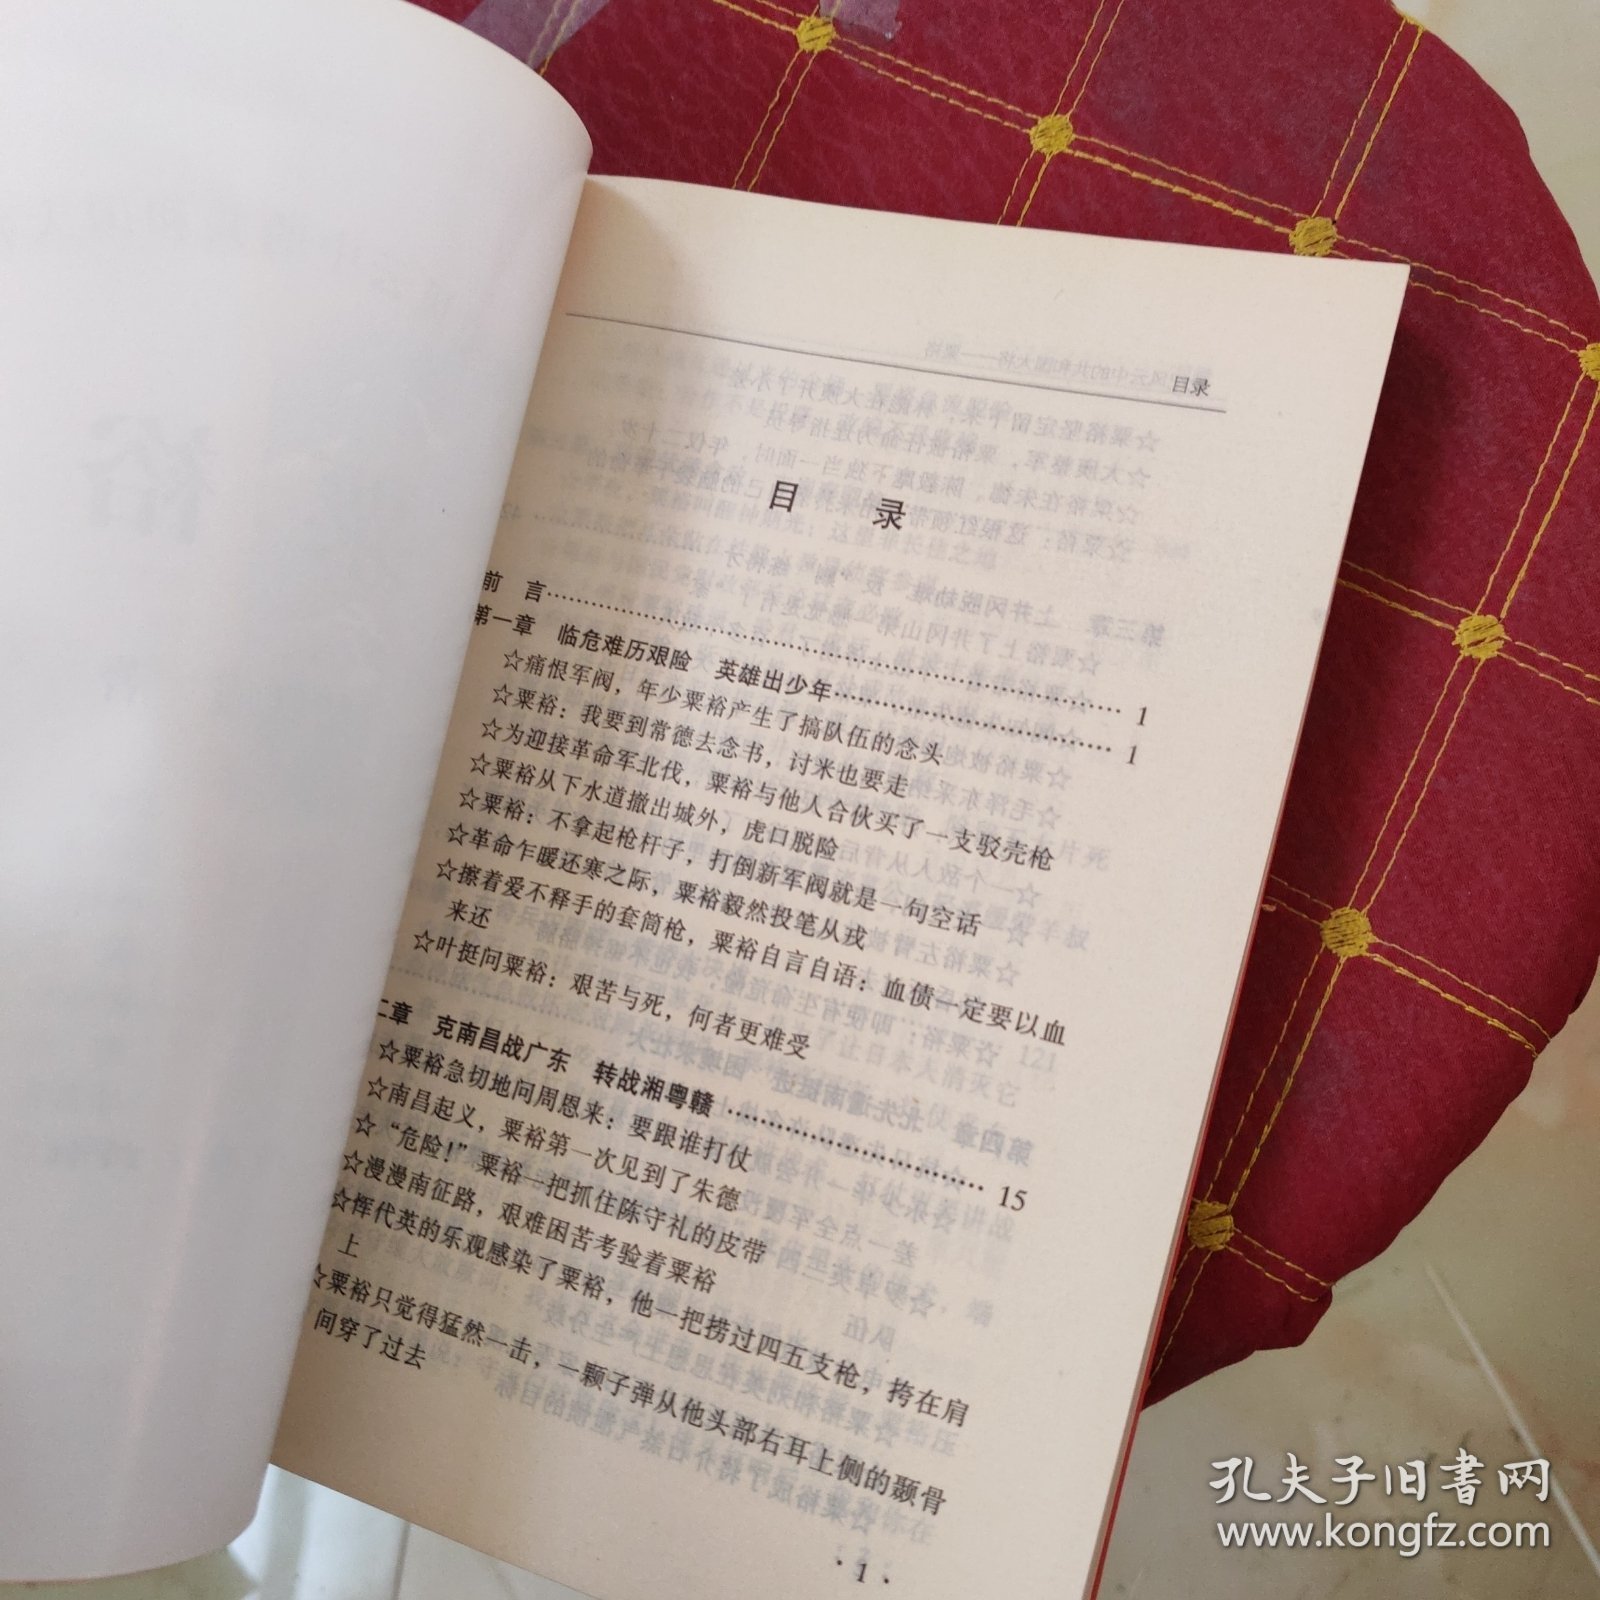 目录
目　录
前　言…………………………………………………… 1
第一章　临危难历艰险　英雄出少年…………………… 1
☆痛恨军阀，年少粟裕产生了搞队伍的念头
☆粟裕：我要到常德去念书，讨米也要走
☆为迎接革命军北伐，粟裕与他人合伙买了一支驳壳枪
☆粟裕从下水道撤出城外，虎口脱险
☆粟裕：不拿起枪杆子，打倒新军阀就是一句空话
☆革命乍暖还寒之际，粟裕毅然投笔从戎
☆擦着爱不释手的套筒枪，粟裕自言自语：血债一定要以血
来还
☆叶挺问粟裕：艰苦与死，何者更难受
二章　克南昌战广东　转战湘粤赣…………………… 15
☆粟裕急切地问周恩来：要跟谁打仗
☆南昌起义，粟裕第一次见到了朱德
☆“危险！”粟裕一把抓住陈守礼的皮带
☆漫漫南征路，艰难困苦考验着粟裕
☆恽代英的乐观感染了粟裕，他一把捞过四五支枪，挎在肩
上
☆粟裕只觉得猛然一击，一颗子弹从他头部右耳上侧的颞骨
间穿了过去
·1·
孔夫子旧书网
www.kongfz.com